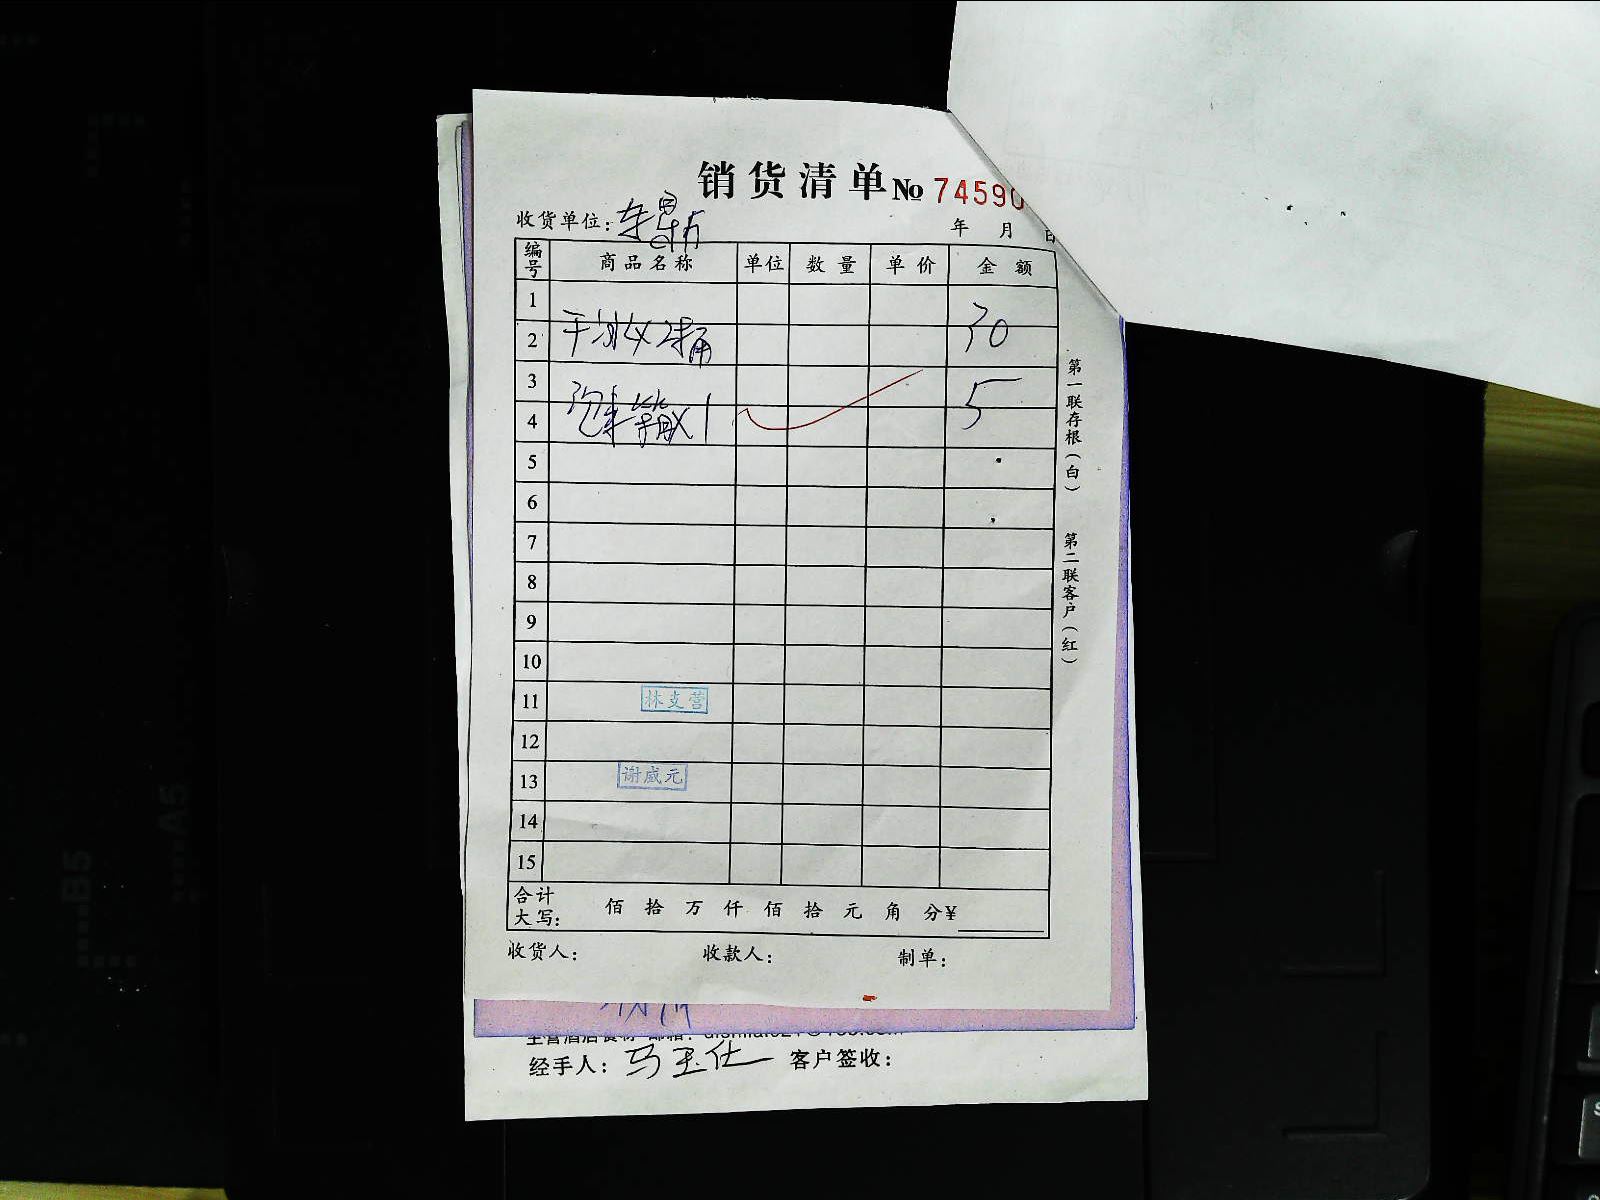 销货清单 № 74590
收货单位:
年 月 日
编号 商品名称 单位 数量 单价 金额
1
2 干 2桶 30
3
4 1 5
5
6
7
8
9
10
11 林支营
12
13 谢威元
14
15
合计大写: 佰 拾 万 仟 佰 拾 元 角 分¥
收货人: 收款人: 制单:
第一联存根(白) 第二联客户(红)
经手人: 马玉仕 客户签收:
B5
A5